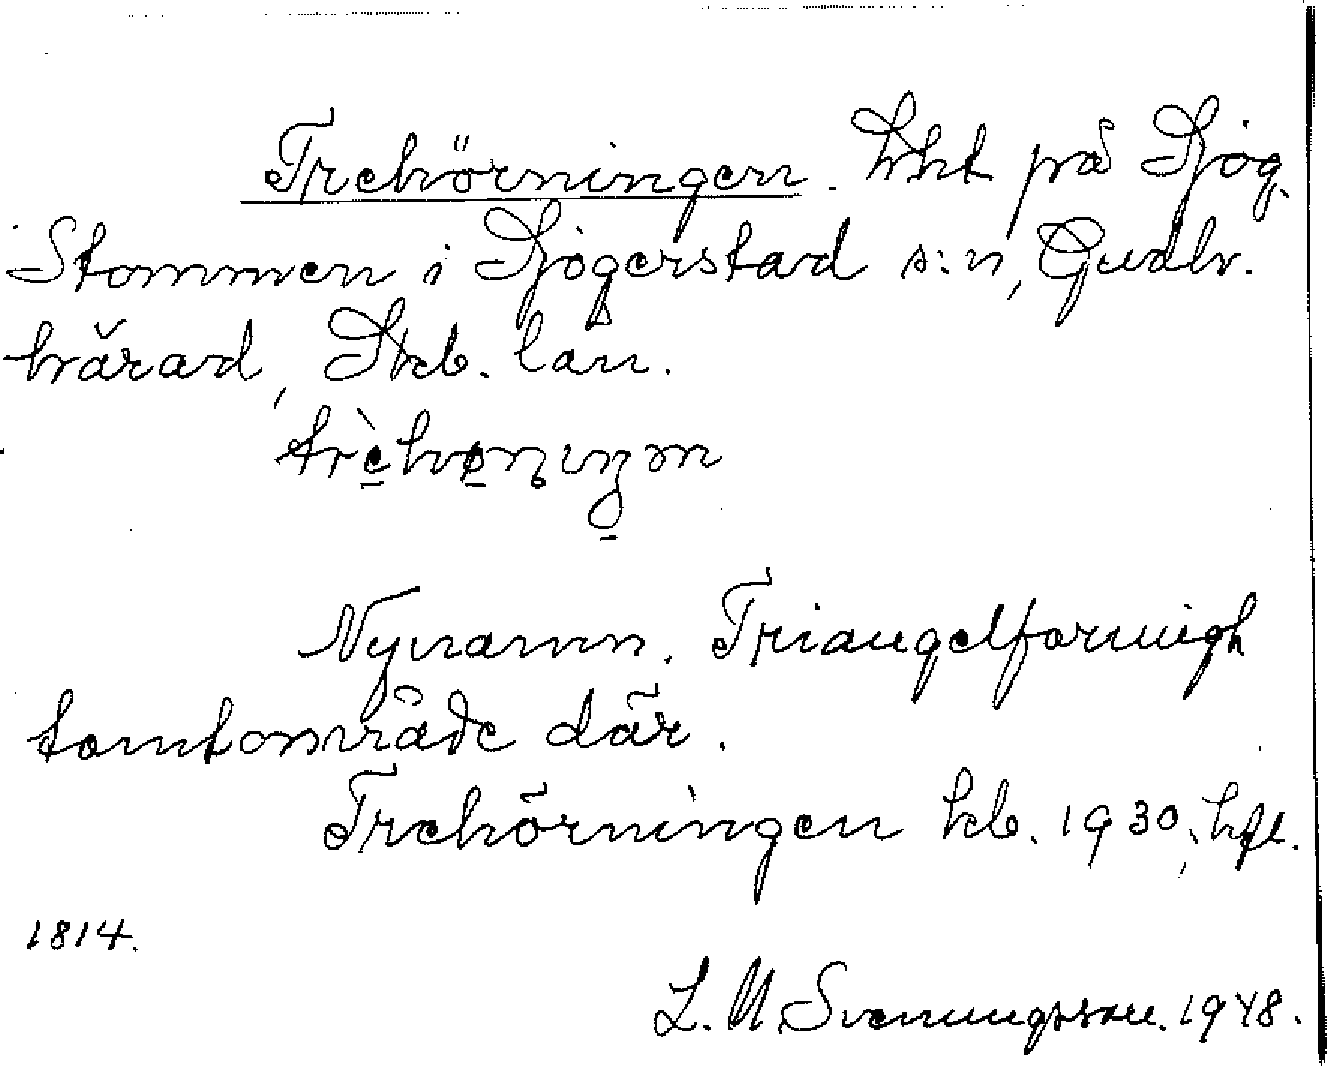 Trehörningen. lht på Sjög.
Stommen i Sjögerstad s:n, Gudh.
härad, Skb. län.
Nynamn. Triangelformigt
tomtområde där.
Trehörningen kb. 1930;
1814.
L. M. Svenungsson. 1948.